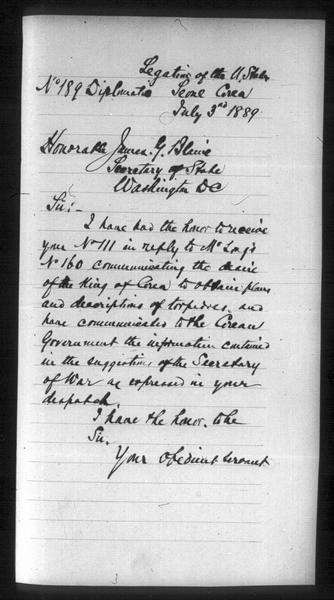 Legation of the U. States
No 189 Diplomatic Seoul Corea
July 3rd 1889
Honorable James G. Blaine
Secretary of State
Washington DC
Sir:-
I have had the honor to receive
your No 111 in reply to Mr Long's
No 160 communicating the desire
of the King of Corea to obtain plans
and descriptions of torpedoes, and
have communicated to the Corean
Government the information contained
in the suggestions of the Secretary
of War as expressed in your
despatch.
I have the honor to be
Sir.
Your obedient servant
3